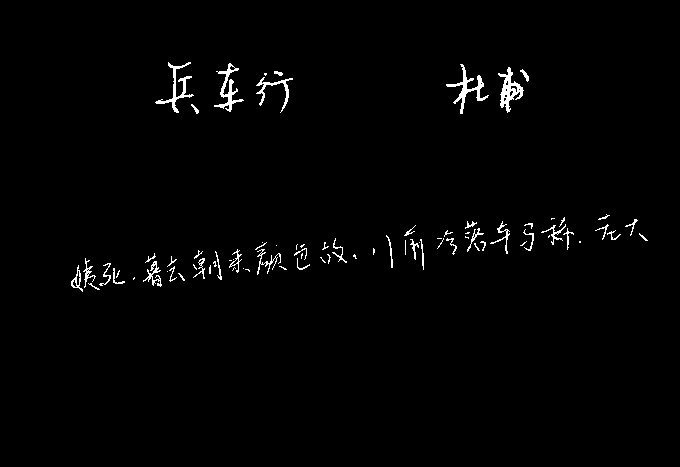 兵车行 杜甫
姨死.暮去朝来颜色故.门前冷落车马稀.老大